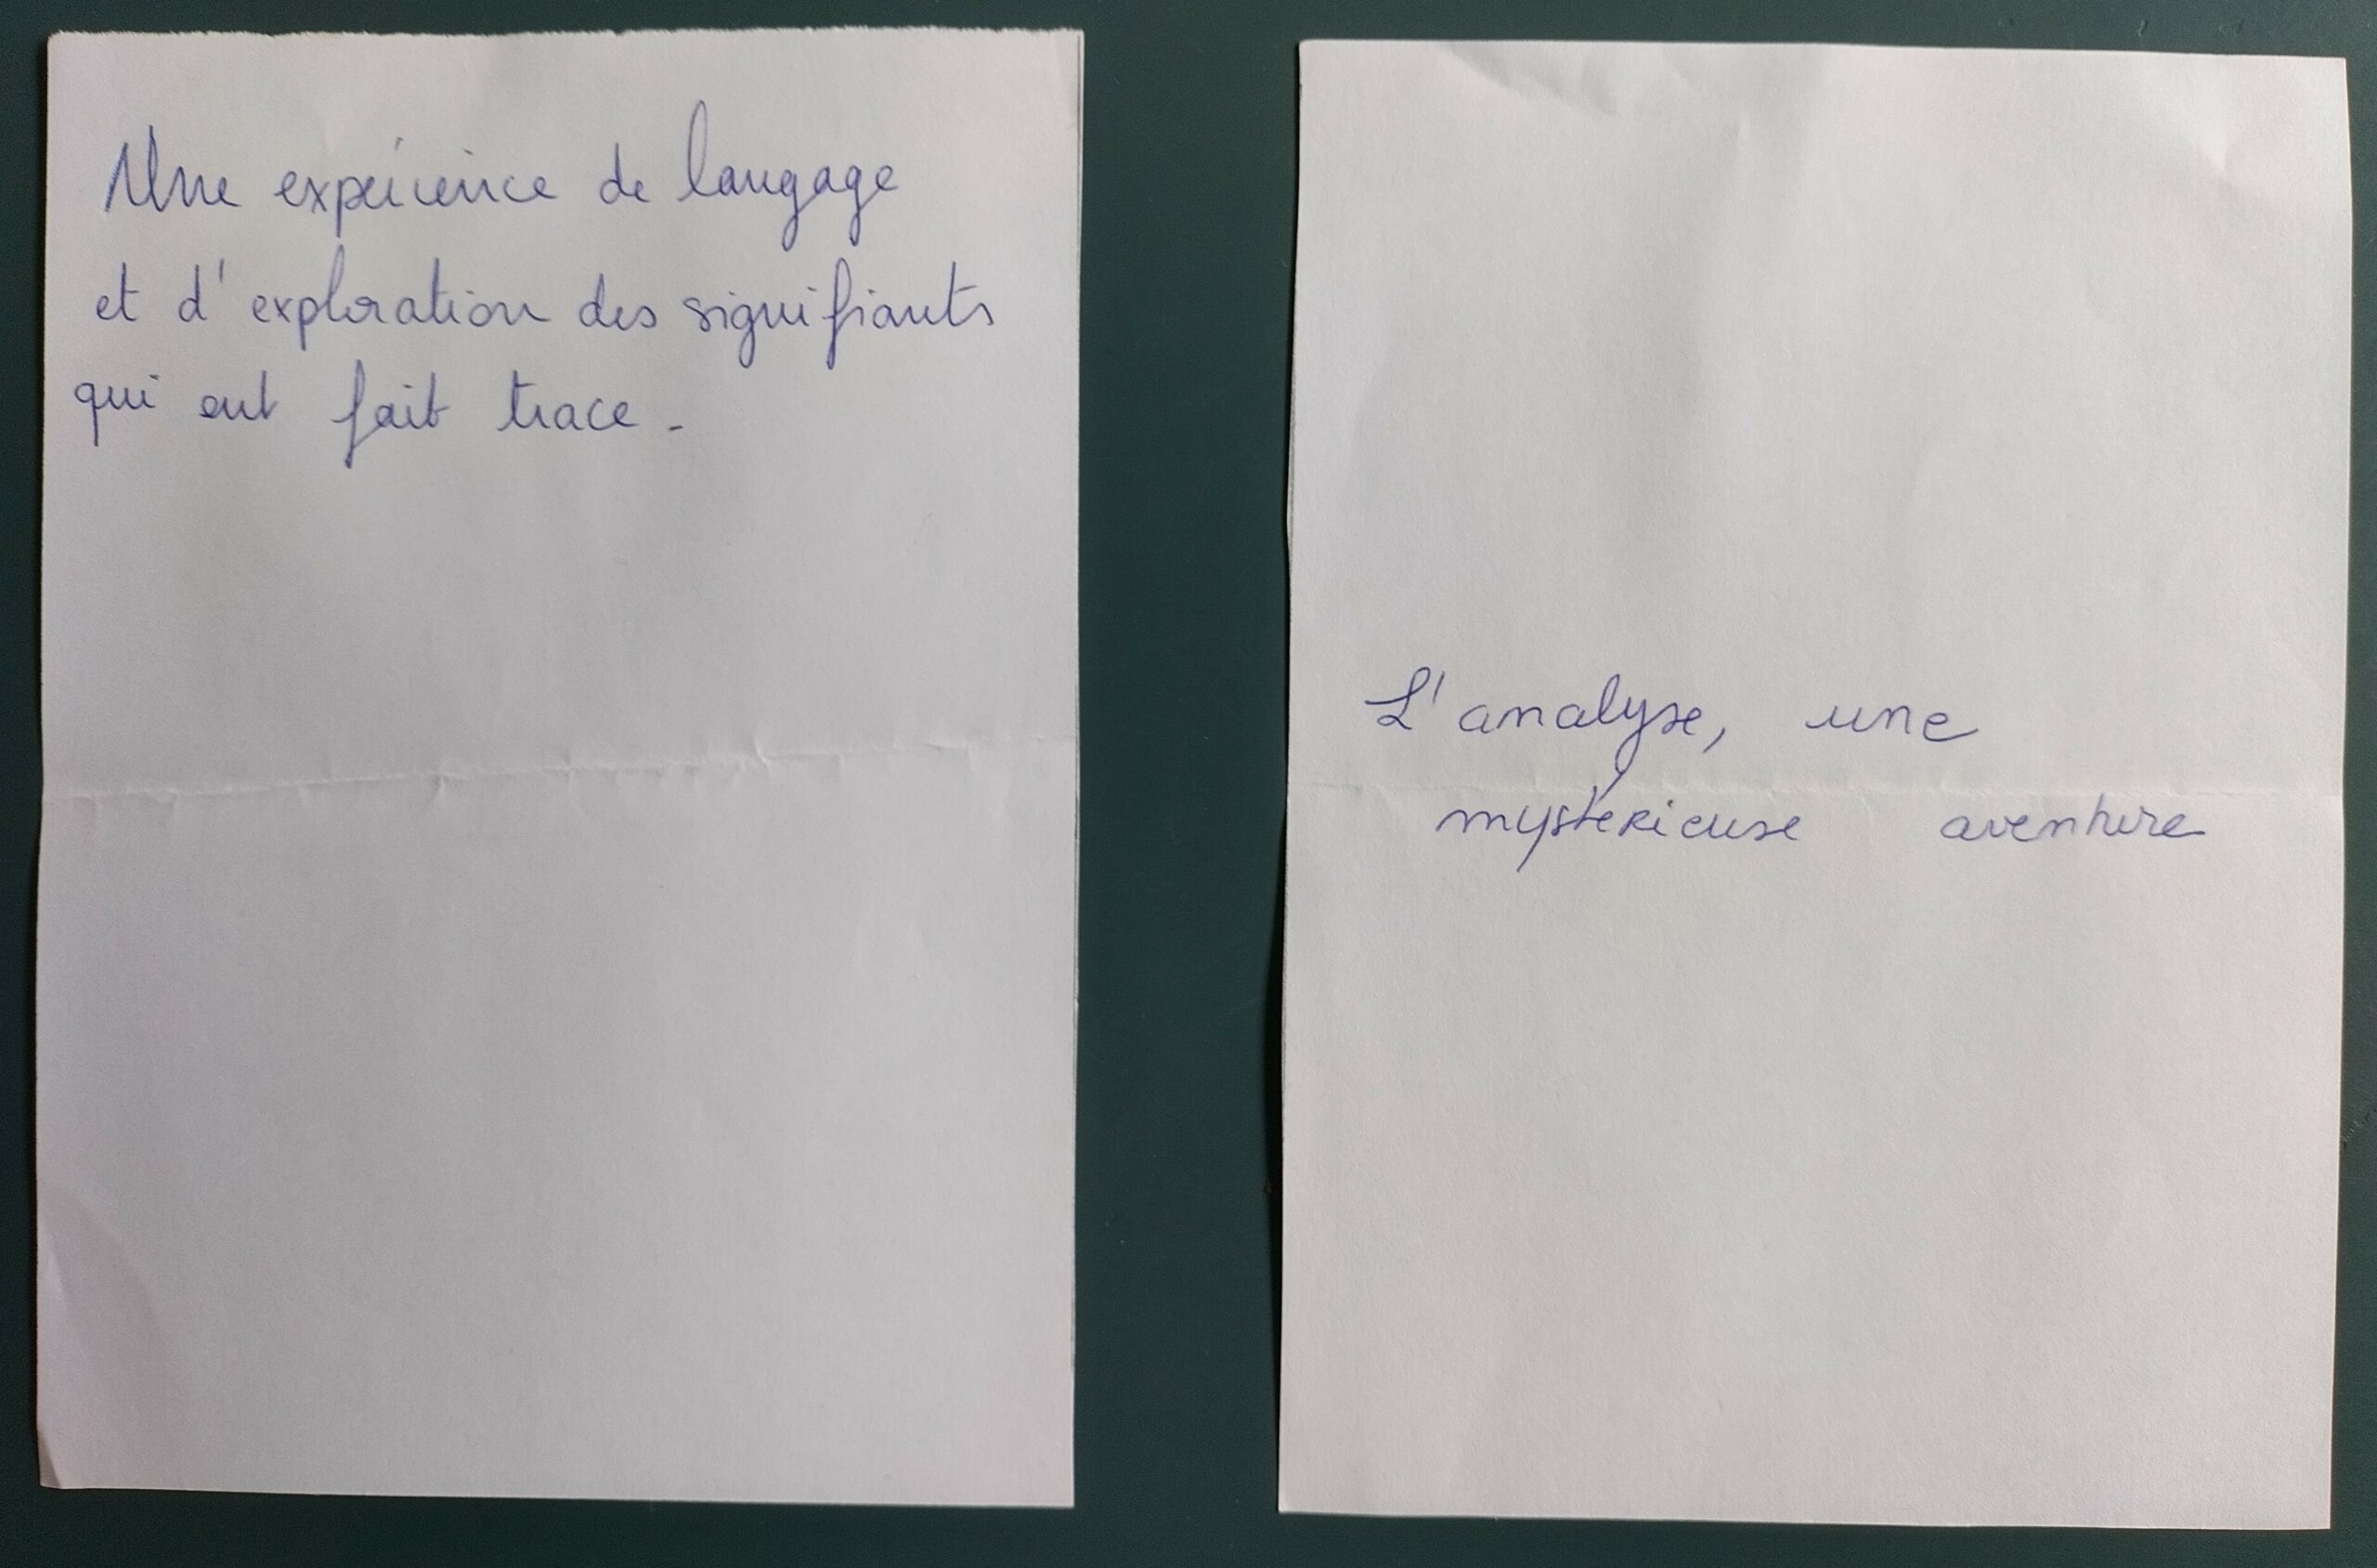 Une expérience de langage
et d'exploration des signifiants
qui ont fait trace.
L'analyse, une
mystérieuse aventure